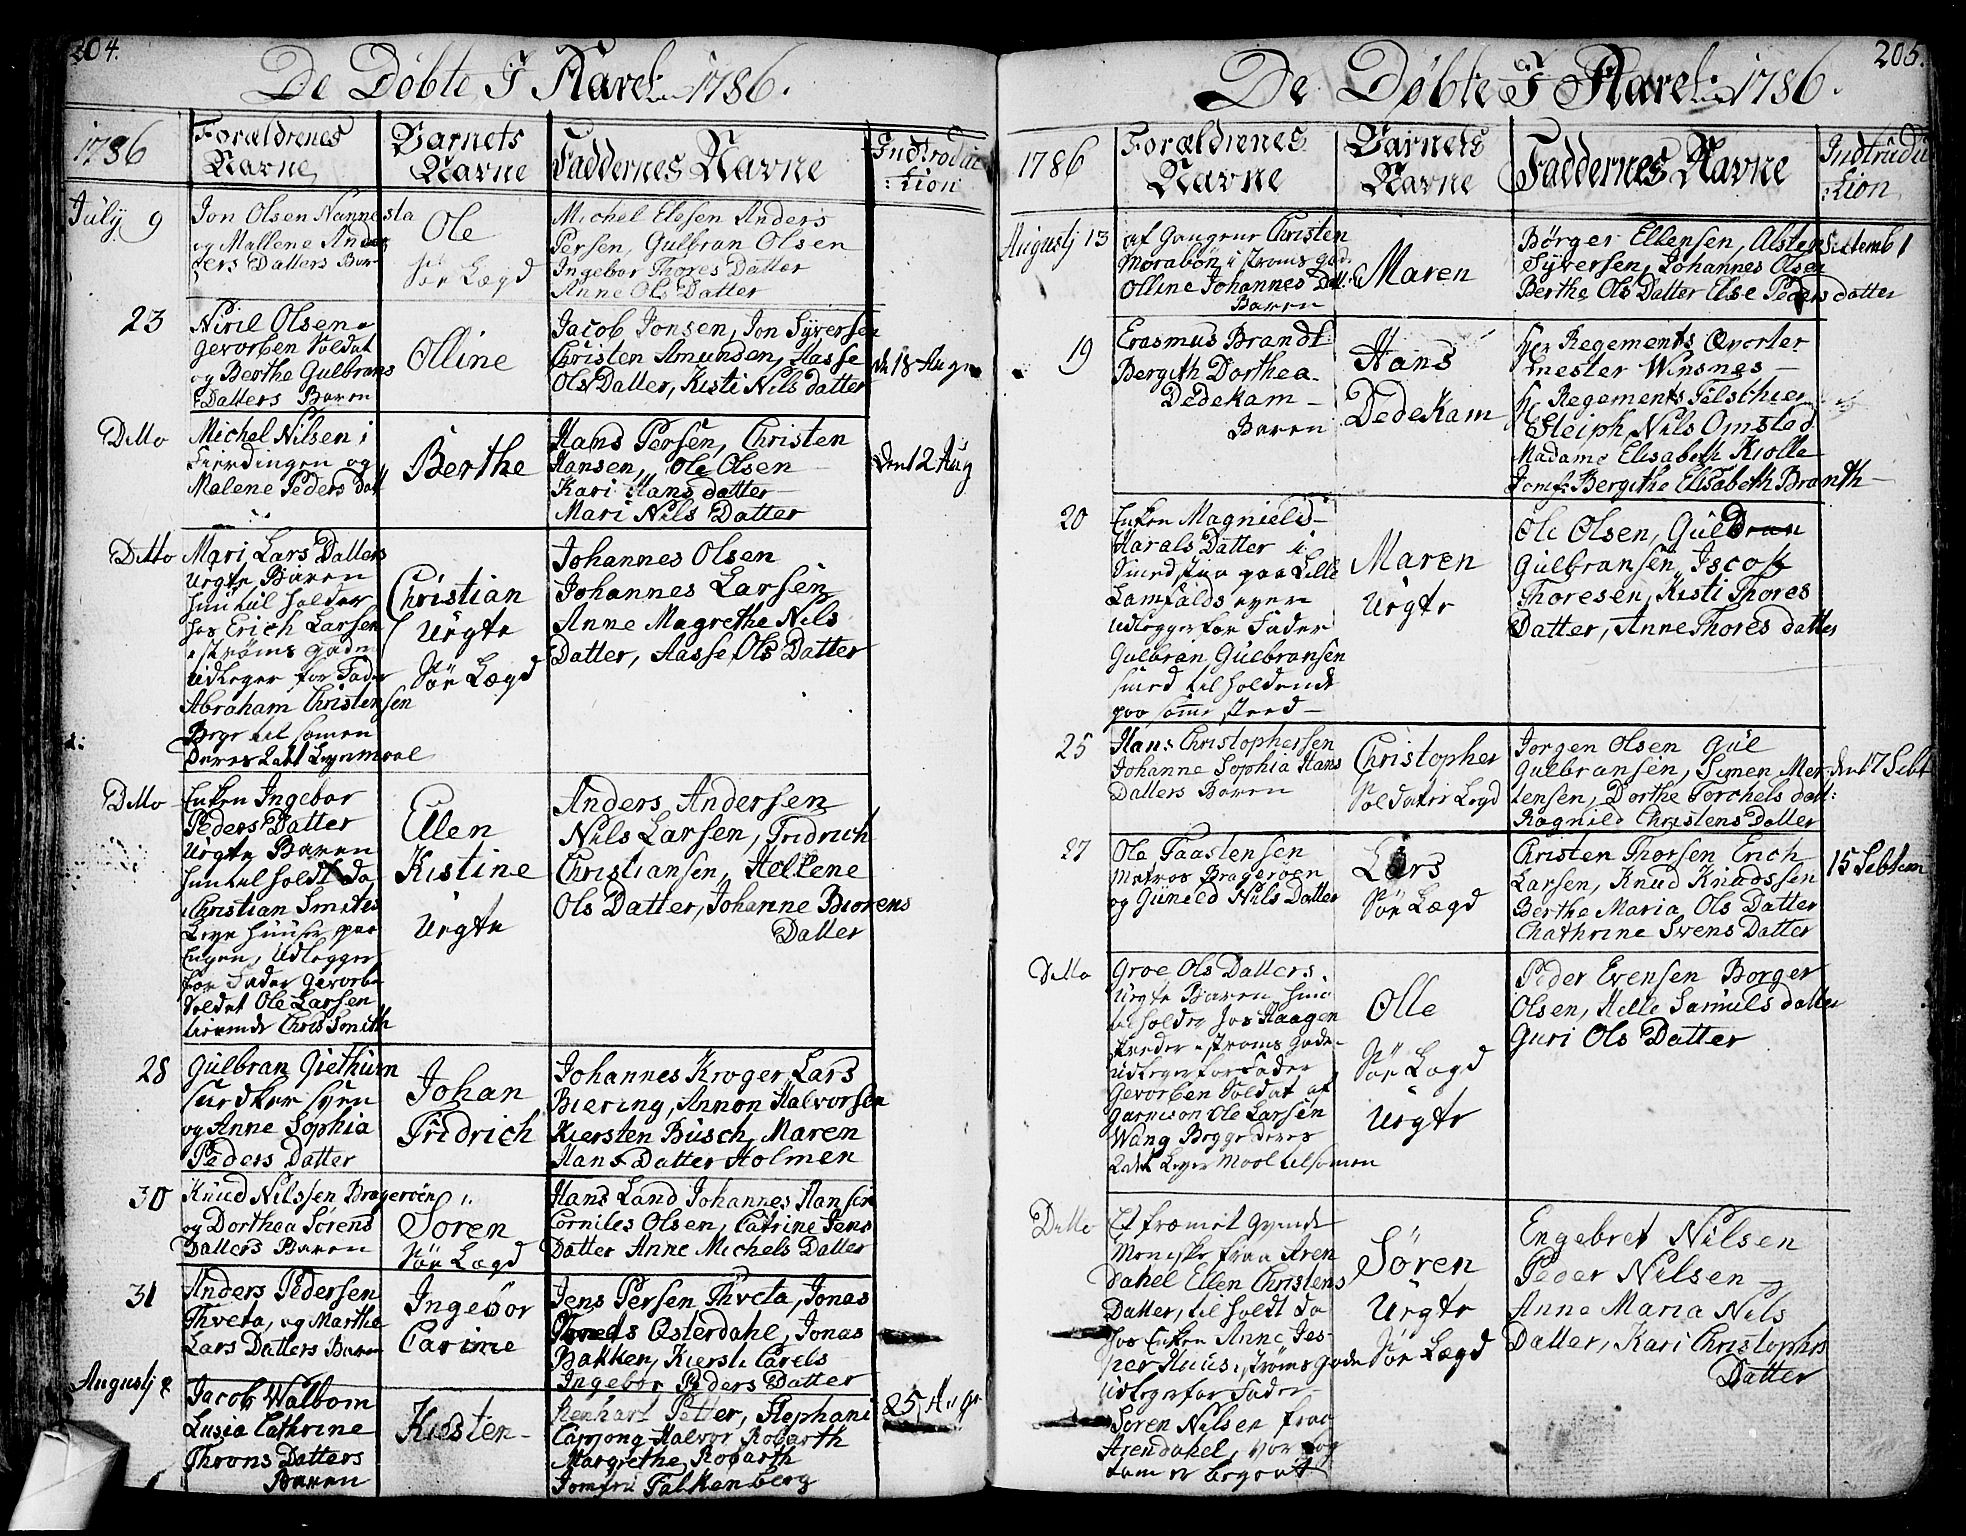 204.
De Døbte I Aaret 1786.
1786
Forældrenes
Navne
Barnets
Navne
Faddernes Navne
Indtroduc
:tion
July 9
Jon Olsen Nannesta
og Mallene Ander
sers Datters Barn
Ole
Sør Lægd
Michel Elesen Anders
Persen, Gulbran Olsen
Ingebor Thores Datter
Anne Ols Datter
23
Niril Olsen
Gevorben Soldat
og Berthe Gulbrans
Datters Baren
Olline
Jacob Jonsen, Jon Syversen
Christen Amunden, Aasse
Ols Datter, Kisti Nils datter
d 18 Aug
Ditto
Michel Nilsen i
Fierdingen og
Malene Peders datt
Berthe
Hans Persen, Christen
Hansen, Ole Olsen
Kari Hans datter
Mari Nils Datter
den 12 Aug
Ditto
Mari Lars Datters
Uegte Baren
hun til holder
hos Erich Larsen
i strøms gaden
Udleger for Fader
Abraham Christensen
Begge til samen
Deres 2det Leyermaal
Christian
Uegte
Sør Lægd
Johannes Olsen
Johannes Larsen
Anne Magrethe Nils
Datter, Aasse Ols Datter
Ditto
Enken Ingebor
Peders Datter
Uegte Baren
hun til holdt da
i Christian Smites
Leye Huuser paa
Engen, Udlegger
for Fader Gevorbe
Soldat Ole Larsen
tienende Chris Smith
Ellen
Kistine
Uegte
Anders Andersen
Nils Larsen, Fridrich
Christiansen, Hellene
Ols Datter, Johanne Biørens
Datter
28
Gulbran Giethuen
og Anne Sophia
Peders Datter
Johan
Fridrich
Johannes Krøger Lars
Biering, Annon Halvorsen
Kiersten Busch, Maren
Hans Datter Holmen
30
Knud Nilssen Bragerøen
og Dorthea Sørens
Datters Baren
Søren
Sør Lægd
Hans Land Johannes Hansen
Corniles Olsen, Catrine Jens
Datter Anne Michels Datter
31
Anders Pedersen
Thveta, og Marthe
Lars Datters Baren
Ingebor
Carine
Jens Persen Thveta, Jonas
Østerdahl, Jonas
Bakken, Kiersti Carels
Ingebor Peders Datter
Augustj 2
Jacob Walbom
Lusia Cathrine
Throns Datters
Baren
Kisten
Renhart Petter, Stephani
Halvor Robarth
Margrethe Robarth
Jomfru Falkenberg
25 Aug
205.
De Døbte I Aaret 1786.
1786
Forældrenes
Navne
Barnets
Navne
Faddernes Navne
Indtrodu
:tion
Augustj 13
af Gangene Christen
Morabøn i strøms gad.
Olline Johannes Datt
Baren
Maren
Børger Ellensen, Alsten
Syversen, Johannes Olsen
Berthe Ols Datter Else Peders datter
Septemb 1
19
Erasmus Brandt
Bergith Dorthea
Dedekam
Baren
Hans
Dedekam
Hr Regements Qvarter
mester Winsnes
Hr Regements Feltschier
Steiph Nils Omsted
Madame Elisabeth Kiølle
Jomfr Bergithe Elisabeth Branth
20
Enken Magnield
Harals Datter i
Smedstua paa Lille
Lamfalds eyere
Udlegger for Fader
Gulbran Gulbransen
smed til holdende
paa samme sted
Maren
Uegte
Ole Olsen, Gulbran
Gulbransen, Jacob
Thoresen, Kisti Thores
Datter, Anne Thores datter
25
Hans Christophersen
Johanne Sophia Hans
Datters Baren
Christopher
Soldater Legd
Jorgen Olsen Gul
Gulbransen, Simen Mor
tensen, Dorthe Torchels datt:
Ragnild Christens Datter
den 17 Sebt
27
Ole Faastensen
Matros Bragerøen
og Gunild Nils Datter
Lars
Sør Lægd
Christen Thorsen Erich
Larsen, Knud Knudssen
Berthe Maria Ols Datter
Chathrine Svens Datter
15 Sebtem
Ditto
Groe Ols Datters
Uegte Baren hun
til holder hos Haagen
i strøms Gade
Udleger for Fader
Gevorben Soldat af
Garnison Ole Larsen
Wang Begge deres
2det Leyer Maal tilsamen
Olle
Sør Lægd
Uegte
Peder Evensen Borger
Olsen, Helle Samuels datter
Guri Ols Datter
Ditto
Et fræmet Qvinde
Meniske fraa Aren
dahel Ellen Christens
Datter, til holdt da
hos Enken Anne Jes
per Huus, i strøms Gade
Udleger for Fader
Søren Nilsen fraa
Arendahel, vor fog
tem er begravet
Søren
Uegte
Sør Lægd
Engebret Nilsen
Peder Nilsen
Anne Maria Nils
Datter, Kari Christophrs
Datter